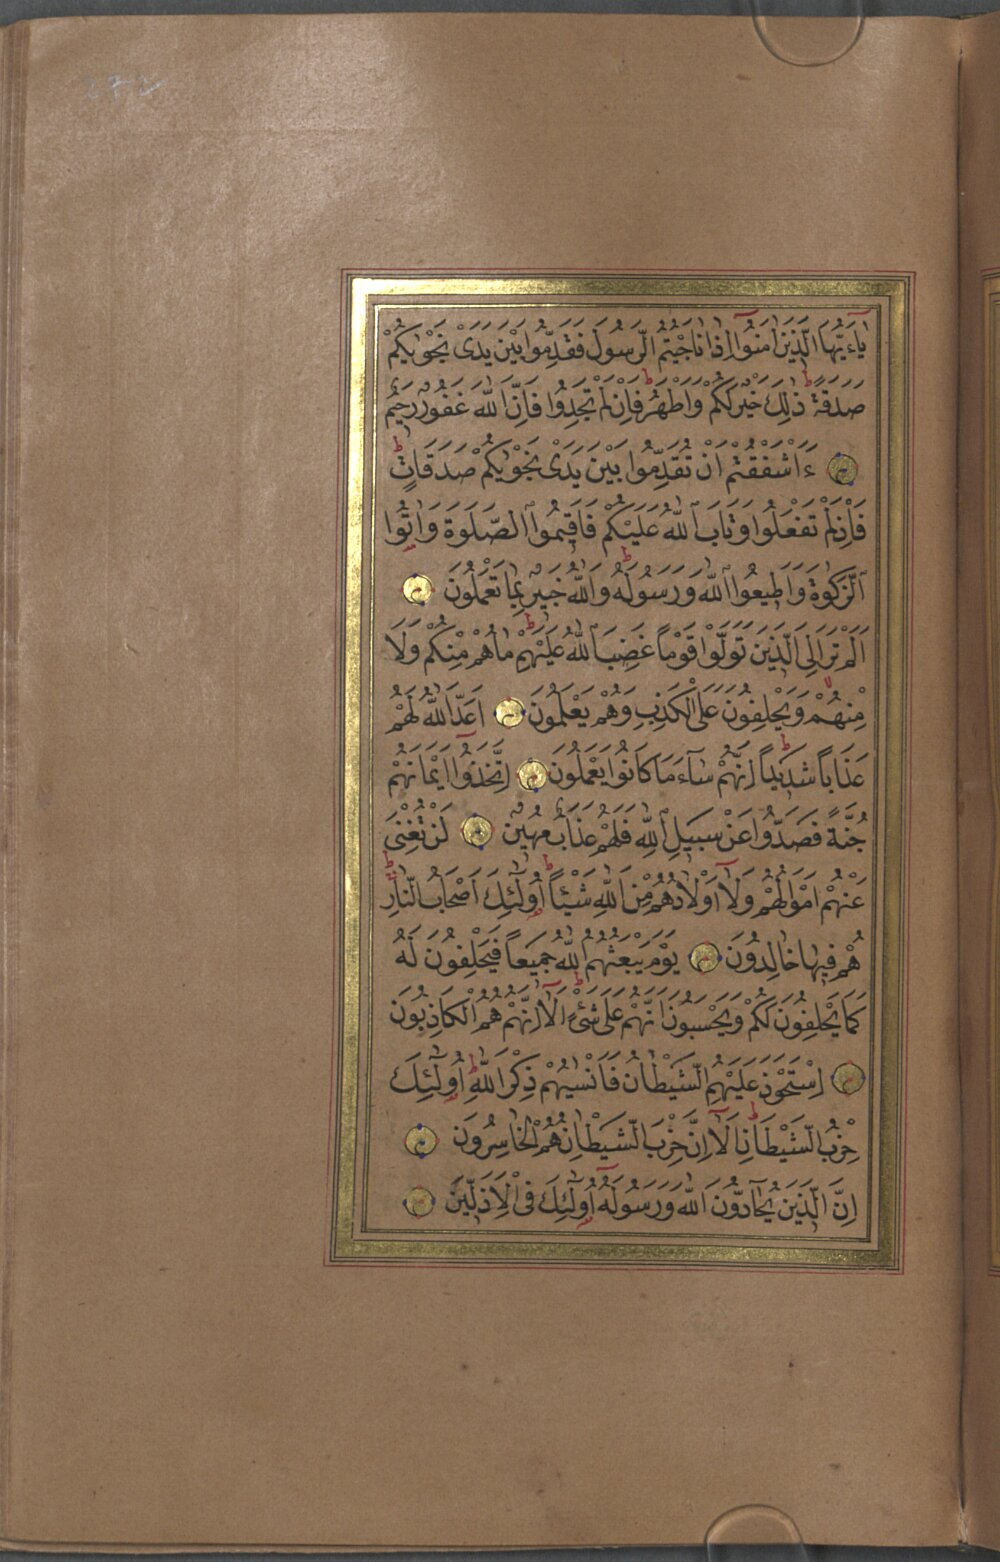 يَٓا اَيُّهَا الَّذ۪ينَ اٰمَنُٓوا اِذَا نَاجَيْتُمُ الرَّسُولَ فَقَدِّمُوا بَيْنَ يَدَيْ نَجْوٰيكُمْ
صَدَقَةًۜ ذٰلِكَ خَيْرٌ لَكُمْ وَاَطْهَرُۜ فَاِنْ لَمْ تَجِدُوا فَاِنَّ اللّٰهَ غَفُورٌ رَح۪يمٌ
ءَاَشْفَقْتُمْ اَنْ تُقَدِّمُوا بَيْنَ يَدَيْ نَجْوٰيكُمْ صَدَقَاتٍۜ
فَاِذْ لَمْ تَفْعَلُوا وَتَابَ اللّٰهُ عَلَيْكُمْ فَاَق۪يمُوا الصَّلٰوةَ وَاٰتُوا
الزَّكٰوةَ وَاَط۪يعُوا اللّٰهَ وَرَسُولَهُۜ وَاللّٰهُ خَب۪يرٌ بِمَا تَعْمَلُونَ
اَلَمْ تَرَ اِلَى الَّذ۪ينَ تَوَلَّوْا قَوْمًا غَضِبَ اللّٰهُ عَلَيْهِمْۜ مَا هُمْ مِنْكُمْ وَلَا
مِنْهُمْۙ وَيَحْلِفُونَ عَلَى الْكَذِبِ وَهُمْ يَعْلَمُونَ اَعَدَّ اللّٰهُ لَهُمْ
عَذَابًا شَد۪يدًاۜ اِنَّهُمْ سَٓاءَ مَا كَانُوا يَعْمَلُونَ اِتَّخَذُٓوا اَيْمَانَهُمْ
جُنَّةً فَصَدُّوا عَنْ سَب۪يلِ اللّٰهِ فَلَهُمْ عَذَابٌ مُه۪ينٌ لَنْ تُغْنِيَ
عَنْهُمْ اَمْوَالُهُمْ وَلَٓا اَوْلَادُهُمْ مِنَ اللّٰهِ شَيْئًاۜ اُو۬لٰٓئِكَ اَصْحَابُ النَّارِۜ
هُمْ ف۪يهَا خَالِدُونَ يَوْمَ يَبْعَثُهُمُ اللّٰهُ جَم۪يعًا فَيَحْلِفُونَ لَهُ
كَمَا يَحْلِفُونَ لَكُمْ وَيَحْسَبُونَ اَنَّهُمْ عَلٰى شَيْءٍۜ اَلَٓا اِنَّهُمْ هُمُ الْكَاذِبُونَ
اِسْتَحْوَذَ عَلَيْهِمُ الشَّيْطَانُ فَاَنْسٰيهُمْ ذِكْرَ اللّٰهِۜ اُو۬لٰٓئِكَ
حِزْبُ الشَّيْطَانِۜ اَلَٓا اِنَّ حِزْبَ الشَّيْطَانِ هُمُ الْخَاسِرُونَ
اِنَّ الَّذ۪ينَ يُحَٓادُّونَ اللّٰهَ وَرَسُولَهُٓ اُو۬لٰٓئِكَ فِي الْاَذَلّ۪ينَ